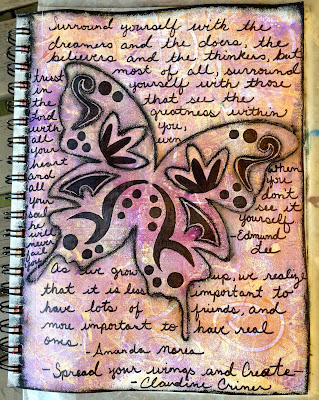 Surround yourself with the
dreamers and the doers, the
believers and the thinkers, but
most of all, surround
yourself with those
that see the
greatness within
you,
even
when
you
don't
see it
yourself
-Edmund
Lee
trust
in
the
Lord
with
all
your
heart
and
all
your
soul
he
will
never
fail
you
As we grow up, we realize
that it is less important to
have lots of friends, and
more important to have real
ones. - Amanda Norea
-Spread your wings and Create-
- Claudine Criner